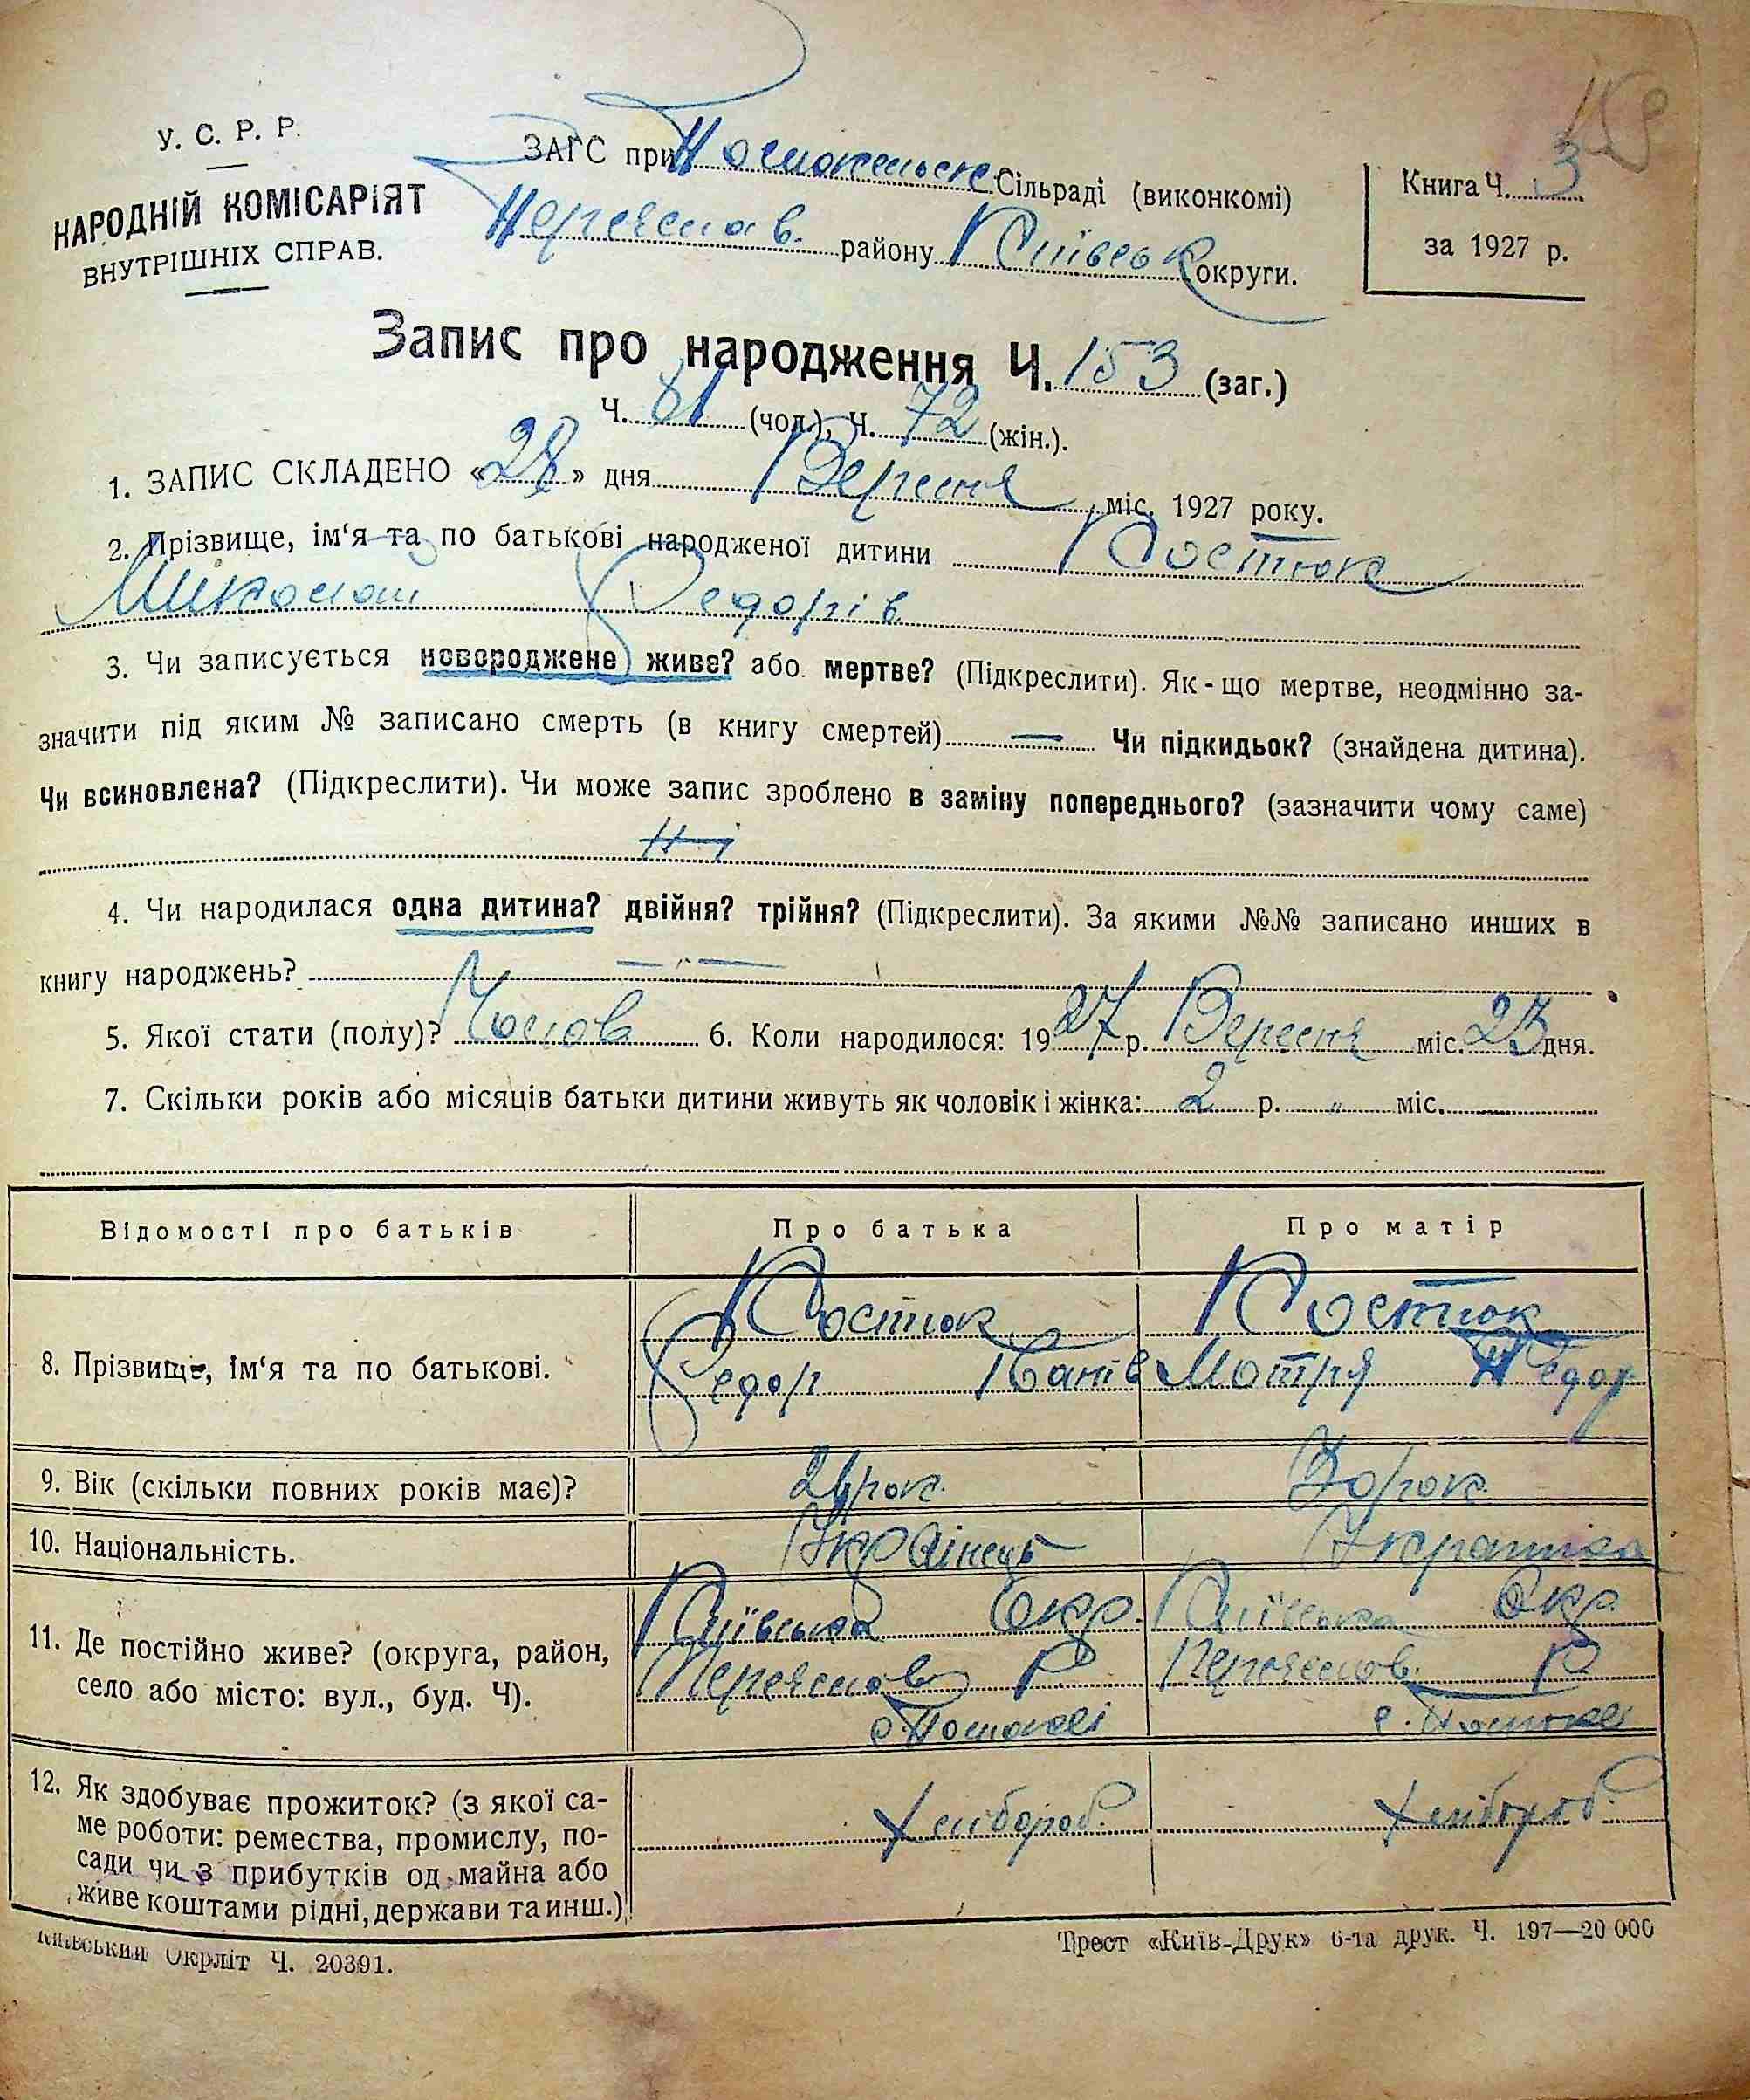 159
У. С. Р. Р.
НАРОДНІЙ КОМІСАРІЯТ
ВНУТРІШНІХ СПРАВ.
ЗАГС при Сільраді (виконкомі)
Переяслав. району Київськ округи.
Книга Ч. 3
за 1927 р.
Запис про народження Ч. 153 (заг.)
Ч. 81 (чол.), Ч. 72 (жін.).
1. ЗАПИС СКЛАДЕНО «28» дня Вересня міс. 1927 року.
2. Прізвище, ім‘я та по батькові народженої дитини Костюк
Миколай Федорів
3. Чи записується новороджене живе? або мертве? (Підкреслити). Як-що мертве, неодмінно за-
значити під яким № записано смерть (в книгу смертей) — Чи підкидьок? (знайдена дитина).
Чи всиновлена? (Підкреслити). Чи може запис зроблено в заміну попереднього? (зазначити чому саме)
Ні
4. Чи народилася одна дитина? двійня? трійня? (Підкреслити). За якими №№ записано инших в
книгу народжень? — „ —
5. Якої стати (полу)? Чолов 6. Коли народилося: 1927 р. Вересня міс. 23 дня.
7. Скільки років або місяців батьки дитини живуть як чоловік і жінка: 2 р. „ міс.
Відомості про батьків Про батька Про матір
8. Прізвище, ім‘я та по батькові. Костюк Костюк
Федор Іванів Мотря Федор
9. Вік (скільки повних років має)? рок. рок.
10. Національність. Українець Українка
11. Де постійно живе? (округа, район,
село або місто: вул., буд. Ч).
Київська Окр. Київська Окр.
Переяслов Р Переяслов. Р
с. с.
12. Як здобуває прожиток? (з якої са-
ме роботи: ремества, промислу, по-
сади чи з прибутків од майна або
живе коштами рідні, держави та инш.)
хлібороб. хлібороб.
Київський Окрліт Ч. 20391.
Трест «Київ-Друк» 6-та друк. Ч. 197—20 000